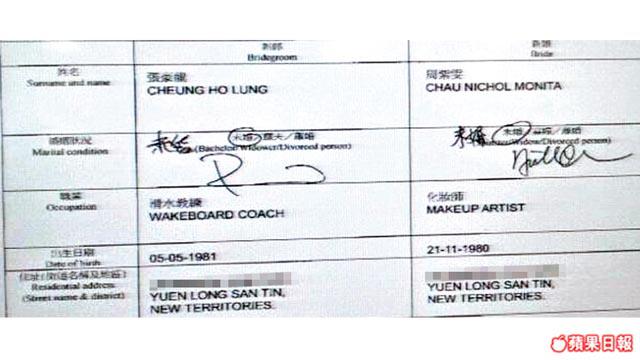 新郎
Bridegroom
新娘
Bride
姓名
Surname and name
張豪龍
CHEUNG HO LUNG
周紫雯
CHAU NICHOL MONITA
婚姻狀況
Marital condition
未婚
未婚／鰥夫／離婚
(Bachelor/Widower/Divorced person)
未婚
未婚／寡婦／離婚
/Widow/Divorced person)
職業
Occupation
滑水教練
WAKEBOARD COACH
化妝師
MAKEUP ARTIST
出生日期
Date of birth
05-05-1981
21-11-1980
住址(街道名稱及地區)
Residential address
(Street name & district)
YUEN LONG SAN TIN,
NEW TERRITORIES.
YUEN LONG SAN TIN,
NEW TERRITORIES.
蘋果日報